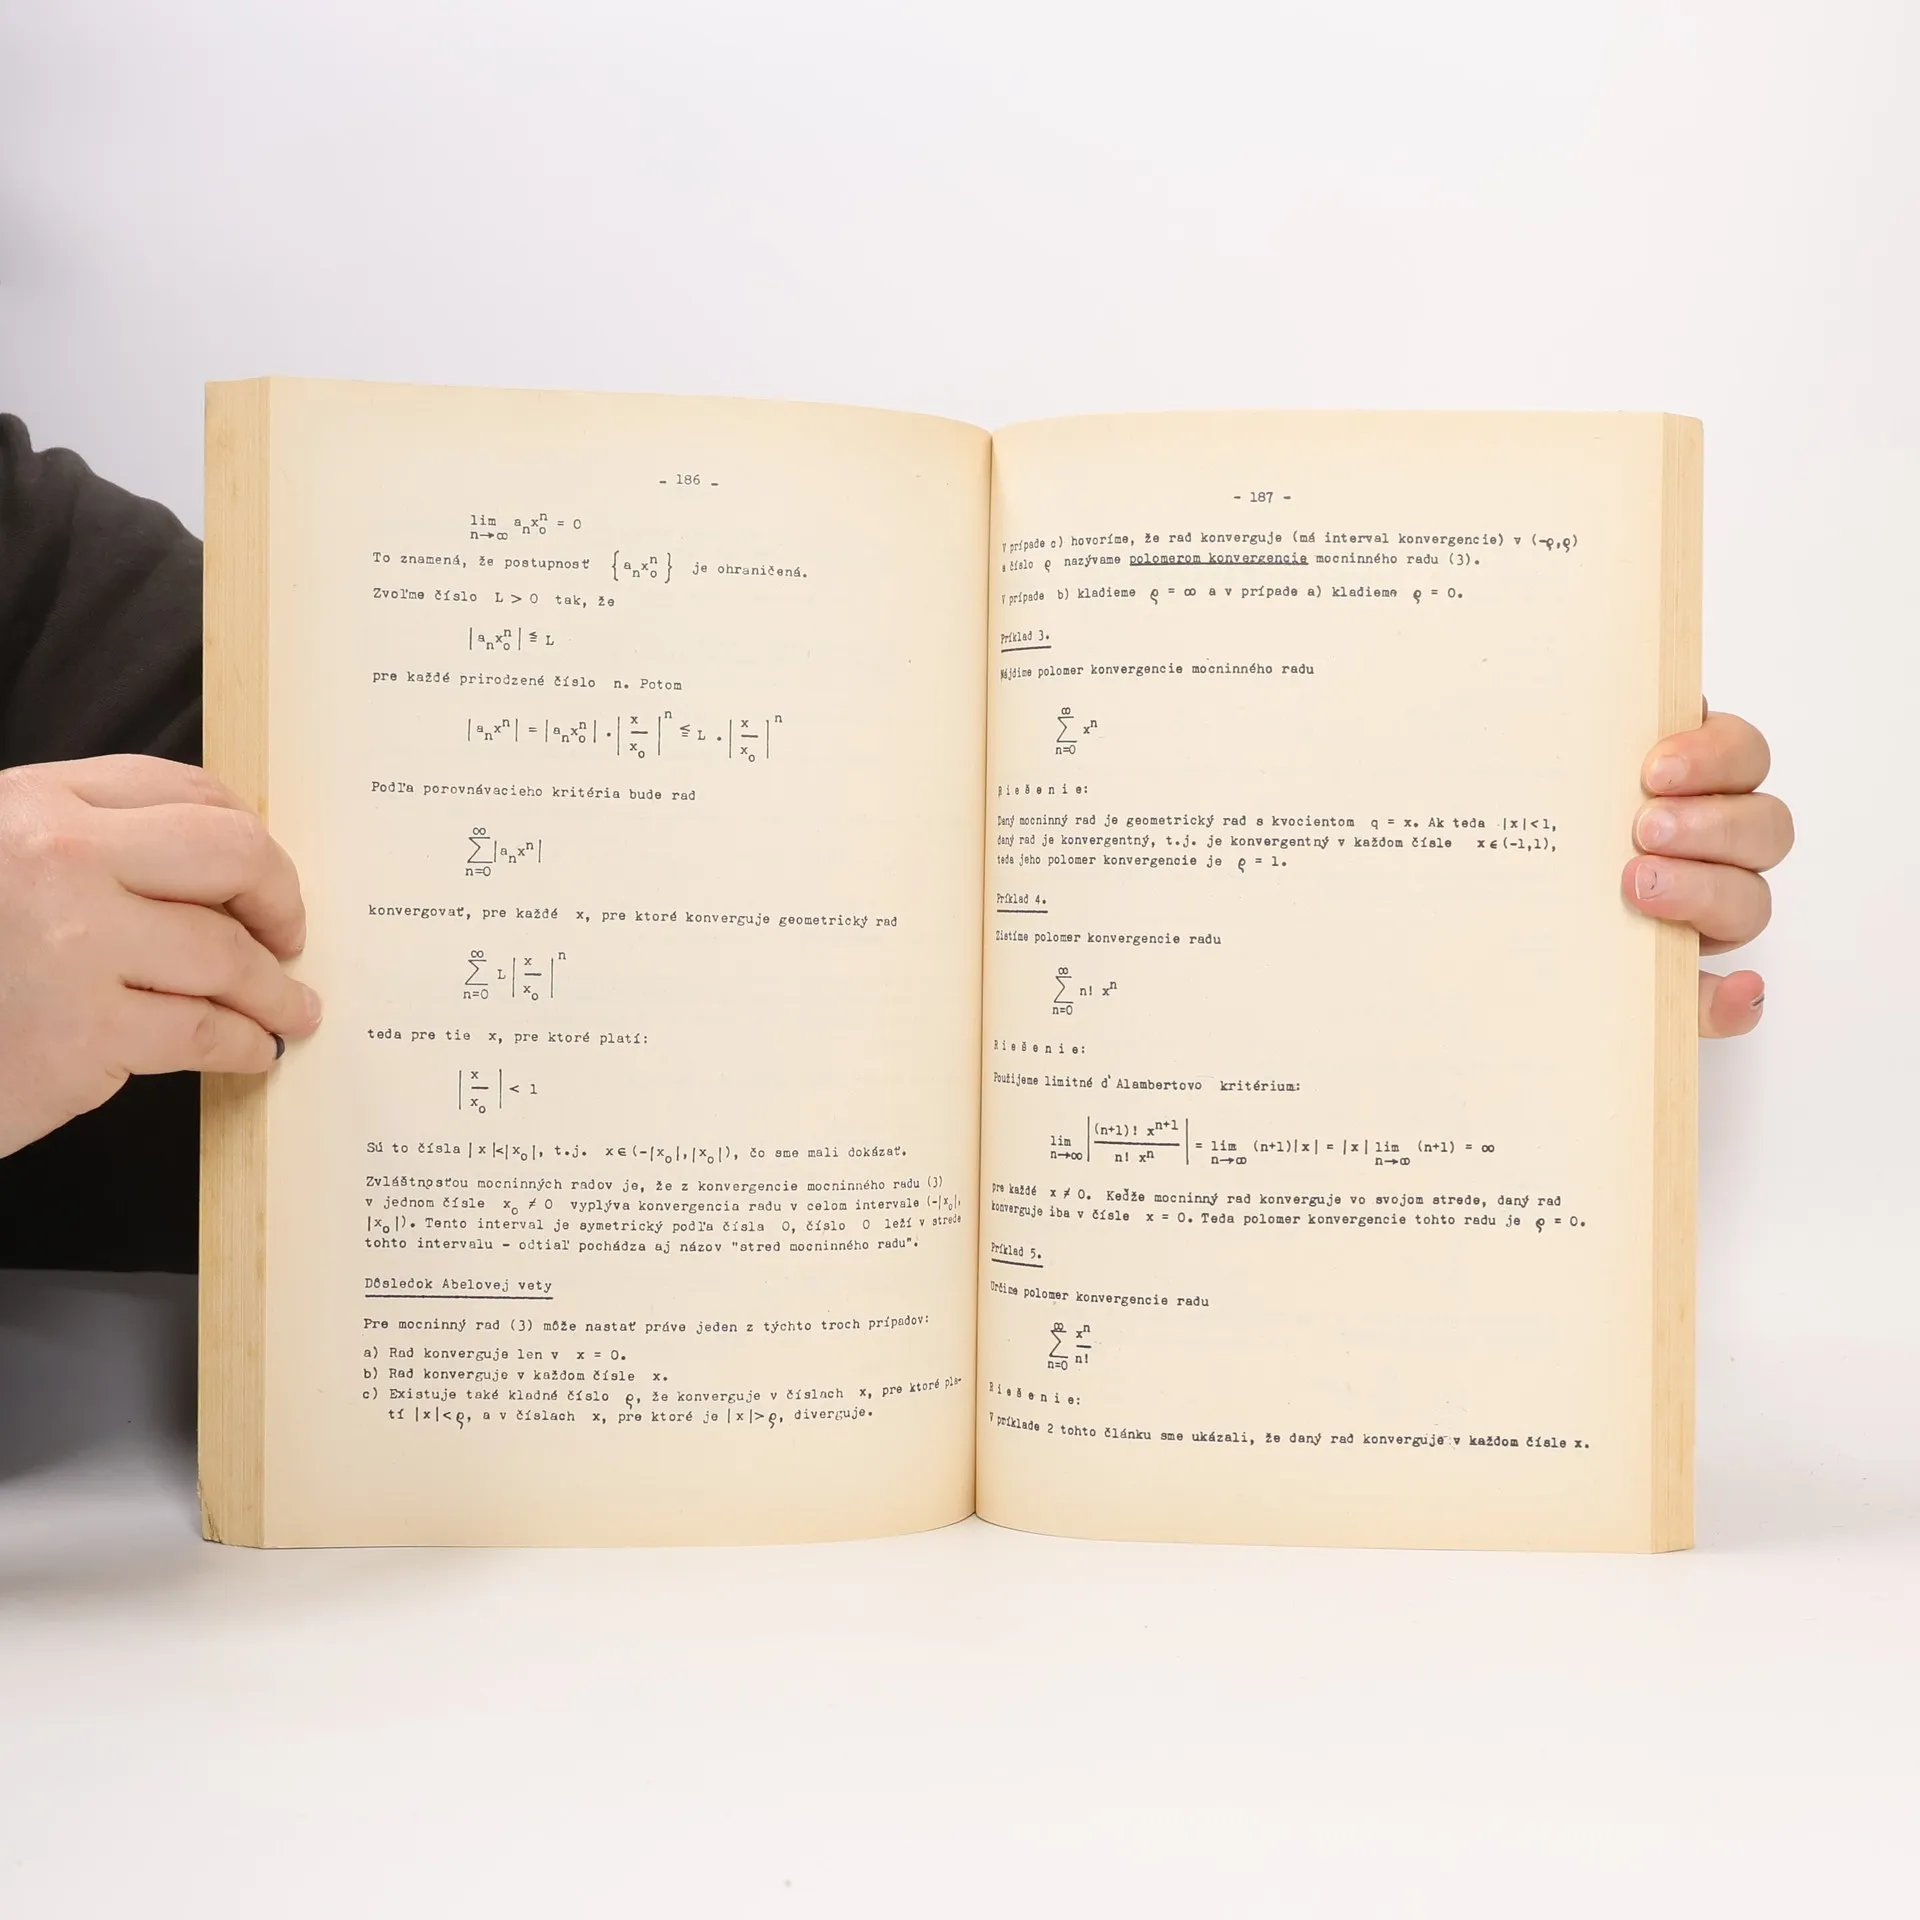 - 186 -
lim aₙx₀ⁿ = 0
n→∞
To znamená, že postupnosť {aₙx₀ⁿ} je ohraničená.
Zvoľme číslo L > 0 tak, že
|aₙx₀ⁿ| ≦ L
pre každé prirodzené číslo n. Potom
|aₙxⁿ| = |aₙx₀ⁿ| . |x/x₀|ⁿ ≦ L . |x/x₀|ⁿ
Podľa porovnávacieho kritéria bude rad
∞
∑|aₙxⁿ|
n=0
konvergovať, pre každé x, pre ktoré konverguje geometrický rad
∞
∑ L |x/x₀|ⁿ
n=0
teda pre tie x, pre ktoré platí:
|x/x₀| < 1
Sú to čísla |x|<|x₀|, t.j. x∈(-|x₀|,|x₀|), čo sme mali dokázať.
Zvláštnosťou mocninných radov je, že z konvergencie mocninného radu (3)
v jednom čísle x₀ ≠ 0 vyplýva konvergencia radu v celom intervale (-|x₀|,
|x₀|). Tento interval je symetrický podľa čísla 0, číslo 0 leží v strede
tohto intervalu - odtiaľ pochádza aj názov "stred mocninného radu".
Dôsledok Abelovej vety
Pre mocninný rad (3) môže nastať práve jeden z týchto troch prípadov:
a) Rad konverguje len v x = 0.
b) Rad konverguje v každom čísle x.
c) Existuje také kladné číslo ϱ, že konverguje v číslach x, pre ktoré pla-
tí |x|<ϱ, a v číslach x, pre ktoré je |x|>ϱ, diverguje.
- 187 -
V prípade c) hovoríme, že rad konverguje (má interval konvergencie) v (-ϱ,ϱ)
a číslo ϱ nazývame polomerom konvergencie mocninného radu (3).
V prípade b) kladieme ϱ = ∞ a v prípade a) kladieme ϱ = 0.
Príklad 3.
Nájdime polomer konvergencie mocninného radu
∞
∑ xⁿ
n=0
Riešenie:
Daný mocninný rad je geometrický rad s kvocientom q = x. Ak teda |x|<1,
daný rad je konvergentný, t.j. je konvergentný v každom čísle x∈(-1,1),
teda jeho polomer konvergencie je ϱ = 1.
Príklad 4.
Zistíme polomer konvergencie radu
∞
∑ n! xⁿ
n=0
Riešenie:
Použijeme limitné d'Alambertovo kritérium:
lim |(n+1)! xⁿ⁺¹ / n! xⁿ| = lim (n+1)|x| = |x| lim (n+1) = ∞
n→∞ n→∞ n→∞
pre každé x ≠ 0. Keďže mocninný rad konverguje vo svojom strede, daný rad
konverguje iba v čísle x = 0. Teda polomer konvergencie tohto radu je ϱ = 0.
Príklad 5.
Určime polomer konvergencie radu
∞
∑ xⁿ/n!
n=0
Riešenie:
V príklade 2 tohto článku sme ukázali, že daný rad konverguje v každom čísle x.